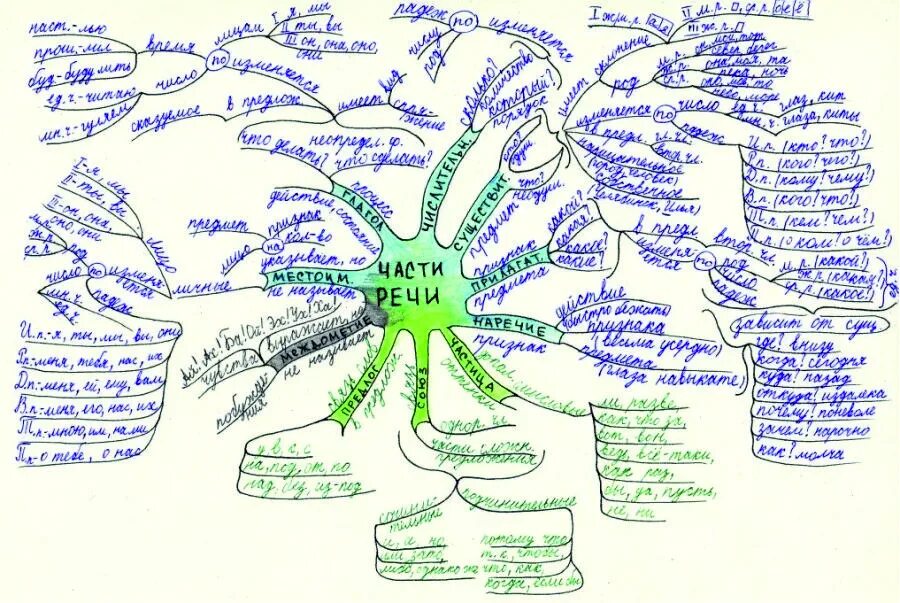 ЧАСТИ
РЕЧИ
ГЛАГОЛ
процесс
действие, состояние
что делать? что сделать?
неопредел. ф.
имеет
вид
спря-
жение
в предлож
сказуемое
изменяется
по
время
наст.-
прош.-
буд.-буду
лицам
I я, мы
II ты, вы
III он, она, оно,
они
число
ед.ч.-читаю
мн.ч.-гуляем
ЧИСЛИТЕЛЬН.
сколько?
количество
который?
порядок
изменяется
по
падеж
числу
род
СУЩЕСТВИТ.
предмет
кто?
душ.
что?
неодуш.
имеет
склонение
I ж.м.р.
а я
II м.р. ср.р.
о е ё
III ж.р.
род
м.р.
ж.р.
она, моя, та
река, ночь
ср.р.
оно, моё, то
небо, море
нарицательное
(город, человек)
собственное
(Челябинск, Илья)
в предл.
гл.ч.
втр.чл.
изменяется
по
число
ед.ч.
глаз, кит
мн.ч.
глаза, киты
падеж
И.п. (кто? что?)
Р.п. (кого? чего?)
Д.п. (кому? чему?)
В.п. (кого? что?)
Т.п. (кем? чем?)
П.п. (о ком? о чём?)
ПРИЛАГАТ.
признак
предмета
какой?
какая?
какое?
какие?
в предл
втор.
чл.
изменя-
ется
по
род
м.р. (какой?)
ж.р. (какая?)
ср.р. (какое?)
число
падеж
зависит от сущ
НАРЕЧИЕ
признак
действие
(быстро бежать)
признака
(весьма усердно)
предмета
(глаза навыкате)
где? внизу
когда? сегодня
куда? назад
откуда? издалека
почему? поневоле
зачем? нарочно
как? молча
ЧАСТИЦА
ли, разве,
как, что за,
вот, вон,
ведь, всё-таки,
как раз,
бы, да, пусть,
не, ни
СОЮЗ
однор. чл.
части сложн.
предложения
сочини-
тельные
и, а, но,
или, зато,
либо, однако же
подчинительные
потому что
т.к., чтобы,
что, как,
когда, если бы
ПРЕДЛОГ
у, в, к, с
на, под, от, по
над, без, из-под
МЕЖДОМЕТИЕ
выражает, но
не называет
Ай! Ах! Ба! Ой! Эх! Ух! Ха!
чувства
побужде-
ния
МЕСТОИМ.
указывает, но
не называет
на
предмет
признак
кол-во
лицо
личные
лицо
I-я, мы
II-ты, вы
III-он, она,
оно, они
изменя-
ется
по
род
м.р.
ж.р.
ср.р.
число
ед.ч.
мн.ч.
падеж
И.п.-я, ты, мы, вы, они
Р.п.-меня, тебя, нас, их
Д.п.-меня, ей, ему, вам
В.п.-меня, его, нас, их
Т.п.-мною, им, нами
П.п.-о тебе, о нас